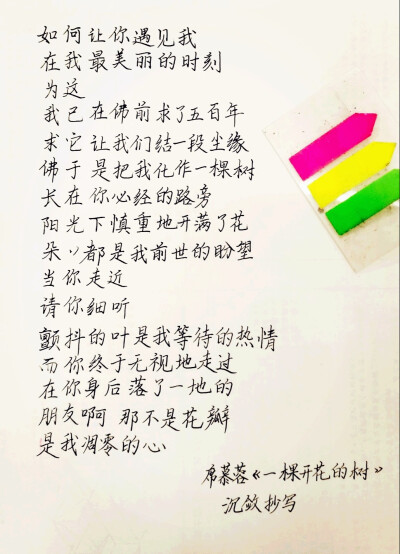 如何让你遇见我
在我最美丽的时刻
为这
我已在佛前求了五百年
求它让我们结一段尘缘
佛于是把我化作一棵树
长在你必经的路旁
阳光下慎重地开满了花
朵〃都是我前世的盼望
当你走近
请你细听
颤抖的叶是我等待的热情
而你终于无视地走过
在你身后落了一地的
朋友啊 那不是花瓣
是我凋零的心
席慕蓉《一棵开花的树》
沉敛抄写